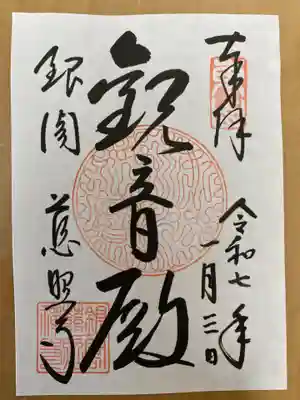 奉拝
令和七年
一月三日
観音殿
銀閣
慈照寺